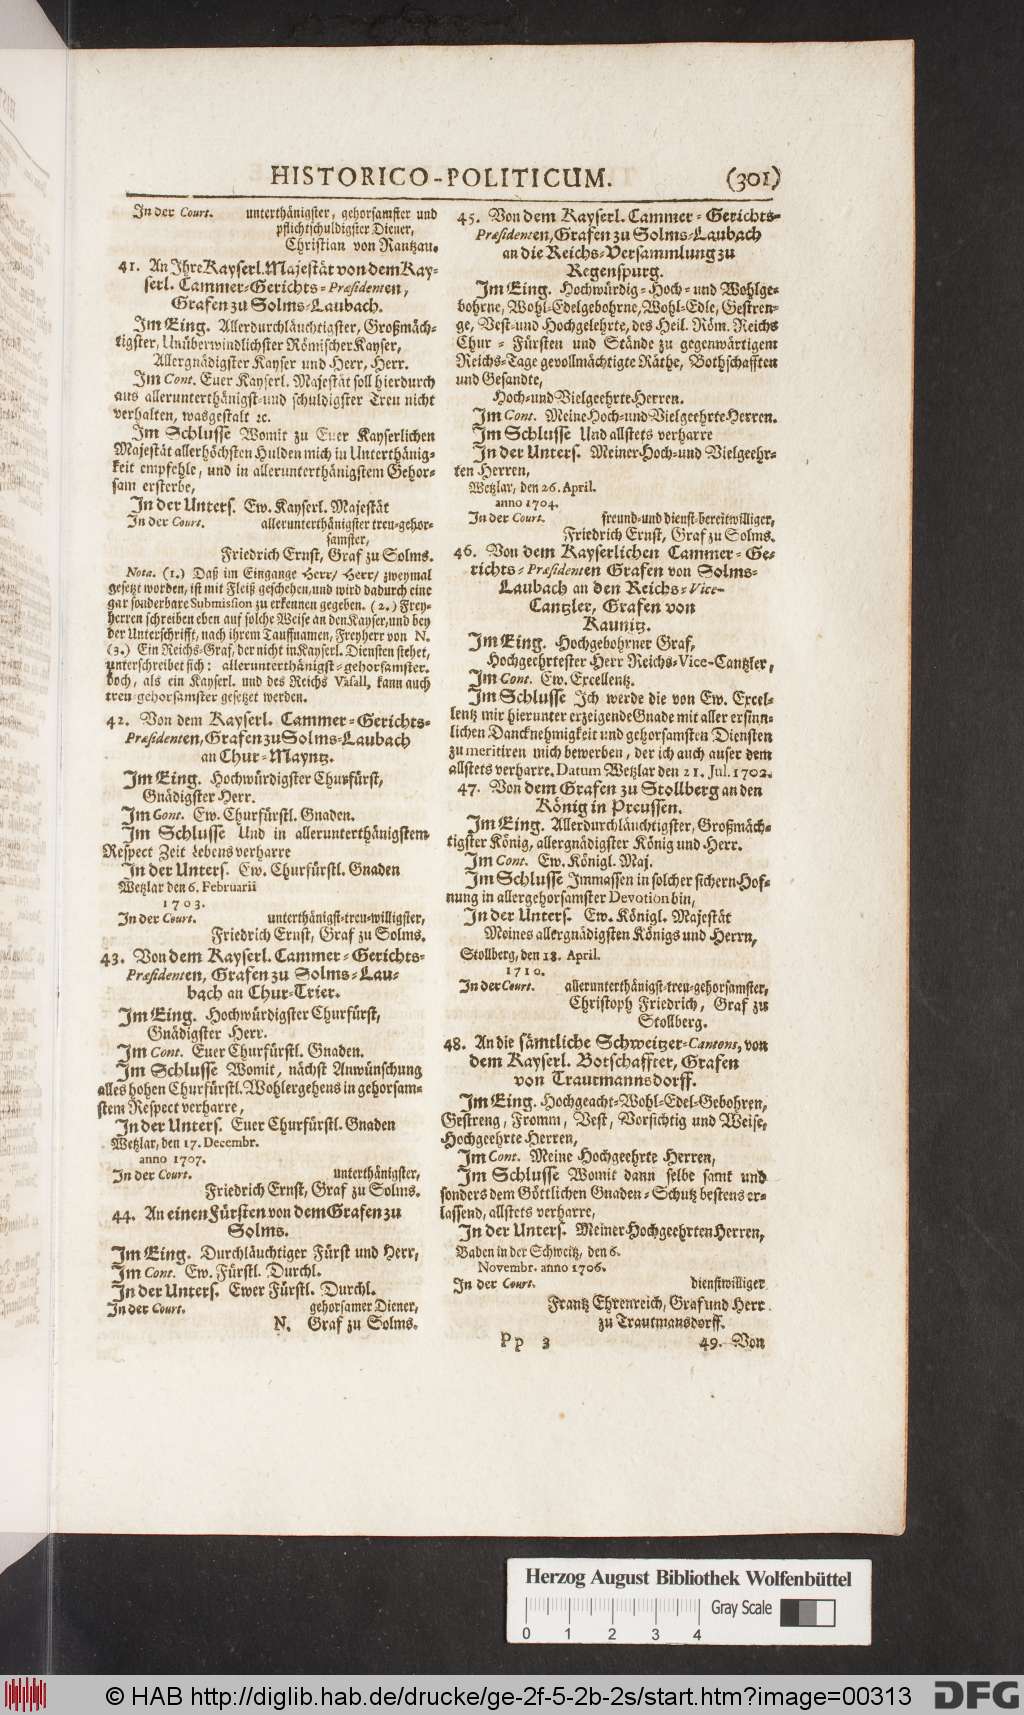 HISTORICO-POLITICUM. (301)
In der Court. unterthänigster, gehorsamster und
pflichtschuldigster Diener,
Christian von Rantzau.
41. An Ihre Kayserl. Majestät von dem Kay-
serl. Cammer-Gerichts-Præsidenten,
Grafen zu Solms-Laubach.
Im Eing. Allerdurchläuchtigster, Großmäch-
tigster, Unüberwindlichster Römischer Kayser,
Allergnädigster Kayser und Herr, Herr.
Im Cont. Euer Kayserl. Majestät soll hierdurch
aus allerunterthänigst-und schuldigster Treu nicht
verhalten, wasgestalt ꝛc.
Im Schlusse Womit zu Euer Kayserlichen
Majestät allerhöchsten Hulden mich in Unterthänig-
keit empfehle, und in allerunterthänigstem Gehor-
sam ersterbe,
In der Unters. Ew. Kayserl. Majestät
In der Court. allerunterthänigster treu-gehor-
samster,
Friedrich Ernst, Graf zu Solms.
Nota. (1.) Daß im Eingange Herr/ Herr/ zweymal
gesetzt worden, ist mit Fleiß geschehen, und wird dadurch eine
gar sonderbare Submission zu erkennen gegeben. (2.) Frey-
herren schreiben eben auf solche Weise an den Kayser, und bey
der Unterschrifft, nach ihrem Tauffnamen, Freyherr von N.
(3.) Ein Reichs-Graf, der nicht in Kayserl. Diensten stehet,
unterschreibet sich: allerunterthänigst-gehorsamster.
doch, als ein Kayserl. und des Reichs Vasall, kann auch
treu-gehorsamster gesetzet werden.
42. Von dem Kayserl. Cammer-Gerichts-
Præsidenten, Grafen zu Solms-Laubach
an Chur-Mayntz.
Im Eing. Hochwürdigster Churfürst,
Gnädigster Herr.
Im Cont. Ew. Churfürstl. Gnaden.
Im Schlusse Und in allerunterthänigstem
Respect Zeit Lebens verharre
In der Unters. Ew. Churfürstl. Gnaden
Wetzlar den 6. Februarii
1703.
In der Court. unterthänigst-treu-willigster,
Friedrich Ernst, Graf zu Solms.
43. Von dem Kayserl. Cammer-Gerichts-
Præsidenten, Grafen zu Solms-Lau-
bach an Chur-Trier.
Im Eing. Hochwürdigster Churfürst,
Gnädigster Herr.
Im Cont. Euer Churfürstl. Gnaden.
Im Schlusse Womit, nächst Anwünschung
alles hohen Churfürstl. Wohlergehens in gehorsam-
stem Respect verharre,
In der Unters. Euer Churfürstl. Gnaden
Wetzlar, den 17. Decembr.
anno 1707.
In der Court. unterthänigster,
Friedrich Ernst, Graf zu Solms.
44. An einen Fürsten von dem Grafen zu
Solms.
Im Eing. Durchläuchtiger Fürst und Herr,
Im Cont. Ew. Fürstl. Durchl.
In der Unters. Ewer Fürstl. Durchl.
In der Court. gehorsamer Diener,
N. Graf zu Solms.
45. Von dem Kayserl. Cammer-Gerichts-
Præsidenten, Grafen zu Solms-Laubach
an die Reichs-Versammlung zu
Regenspurg.
Im Eing. Hochwürdig-Hoch-und Wohlge-
bohrne, Wohl-Edelgebohrne, Wohl-Edle, Gestren-
ge, Vest-und Hochgelehrte, des Heil. Röm. Reichs
Chur-Fürsten und Stände zu gegenwärtigem
Reichs-Tage gevollmächtigte Räthe, Bothschafften
und Gesandte,
Hoch-und Vielgeehrte Herren.
Im Cont. Meine Hoch-und Vielgeehrte Herren.
Im Schlusse Und allstets verharre
In der Unters. Meiner Hoch-und Vielgeehr-
ten Herren,
Wetzlar, den 26. April.
anno 1704.
In der Court. freund-und dienst-bereitwilliger,
Friedrich Ernst, Graf zu Solms.
46. Von dem Kayserlichen Cammer-Ge-
richts-Præsidenten Grafen von Solms-
Laubach an den Reichs-Vice-
Cantzler, Grafen von
Kaunitz.
Im Eing. Hochgebohrner Graf,
Hochgeehrtester Herr Reichs-Vice-Cantzler,
Im Cont. Ew. Excellentz.
Im Schlusse Ich werde die von Ew. Excel-
lentz mir hierunter erzeigende Gnade mit aller ersinn-
lichen Dancknehmigkeit und gehorsamsten Diensten
zu meritiren mich bewerben, der ich auch auser dem
allstets verharre. Datum Wetzlar den 21. Jul. 1702.
47. Von dem Grafen zu Stollberg an den
König in Preussen.
Im Eing. Allerdurchläuchtigster, Großmäch-
tigster König, allergnädigster König und Herr.
Im Cont. Ew. Königl. Maj.
Im Schlusse Immassen in solcher sichern Hof-
nung in allergehorsamster Devotion bin,
In der Unters. Ew. Königl. Majestät
Meines allergnädigsten Königs und Herrn,
Stollberg, den 18. April.
1710.
In der Court. allerunterthänigst-treu-gehorsamster,
Christoph Friedrich, Graf zu
Stollberg.
48. An die sämtliche Schweitzer-Cantons, von
dem Kayserl. Botschaffter, Grafen
von Trautmannsdorff.
Im Eing. Hochgeacht-Wohl-Edel-Gebohren,
Gestreng, Fromm, Vest, Vorsichtig und Weise,
Hochgeehrte Herren,
Im Cont. Meine Hochgeehrte Herren,
Im Schlusse Womit dann selbe samt und
sonders dem Göttlichen Gnaden-Schutz bestens er-
lassend, allstets verharre,
In der Unters. Meiner Hochgeehrten Herren,
Baden in der Schweitz, den 6.
Novembr. anno 1706.
In der Court. dienstwilliger
Frantz Ehrenreich, Graf und Herr
zu Trautmansdorff.
Pp 3 49. Von
Herzog August Bibliothek Wolfenbüttel
Gray Scale
0 1 2 3 4
© HAB http://diglib.hab.de/drucke/ge-2f-5-2b-2s/start.htm?image=00313
DFG